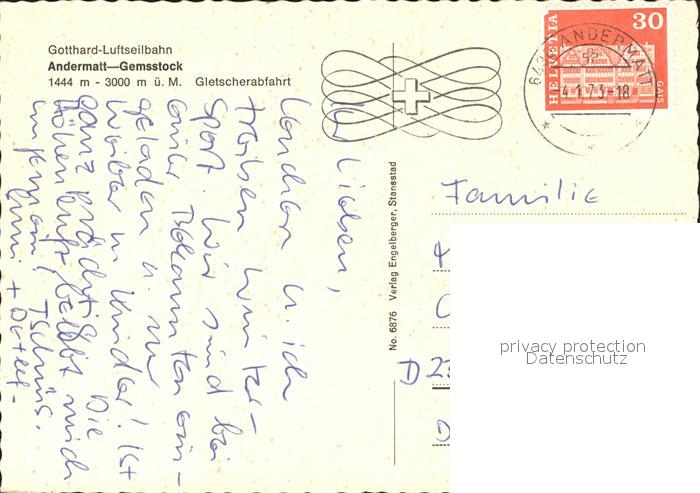 Gotthard-Luftseilbahn
Andermatt—Gemsstock
1444 m - 3000 m ü. M. Gletscherabfahrt
HELVETIA
30
GAIS
ANDERMATT
-4.1.73-18
No. 6876 Verlag Engelberger, Stansstad
Ihr Lieben,
u. ich
treiben Winter-
Sport. Wir sind bei
Bekannten ein-
geladen u. nur
Weiber u. Kinder! Ist
ganz prächtig. Die
Höhenluft belebt mich
ungemein! Tschüs.
+ Detlef.
Familie
D 23
privacy protection
Datenschutz